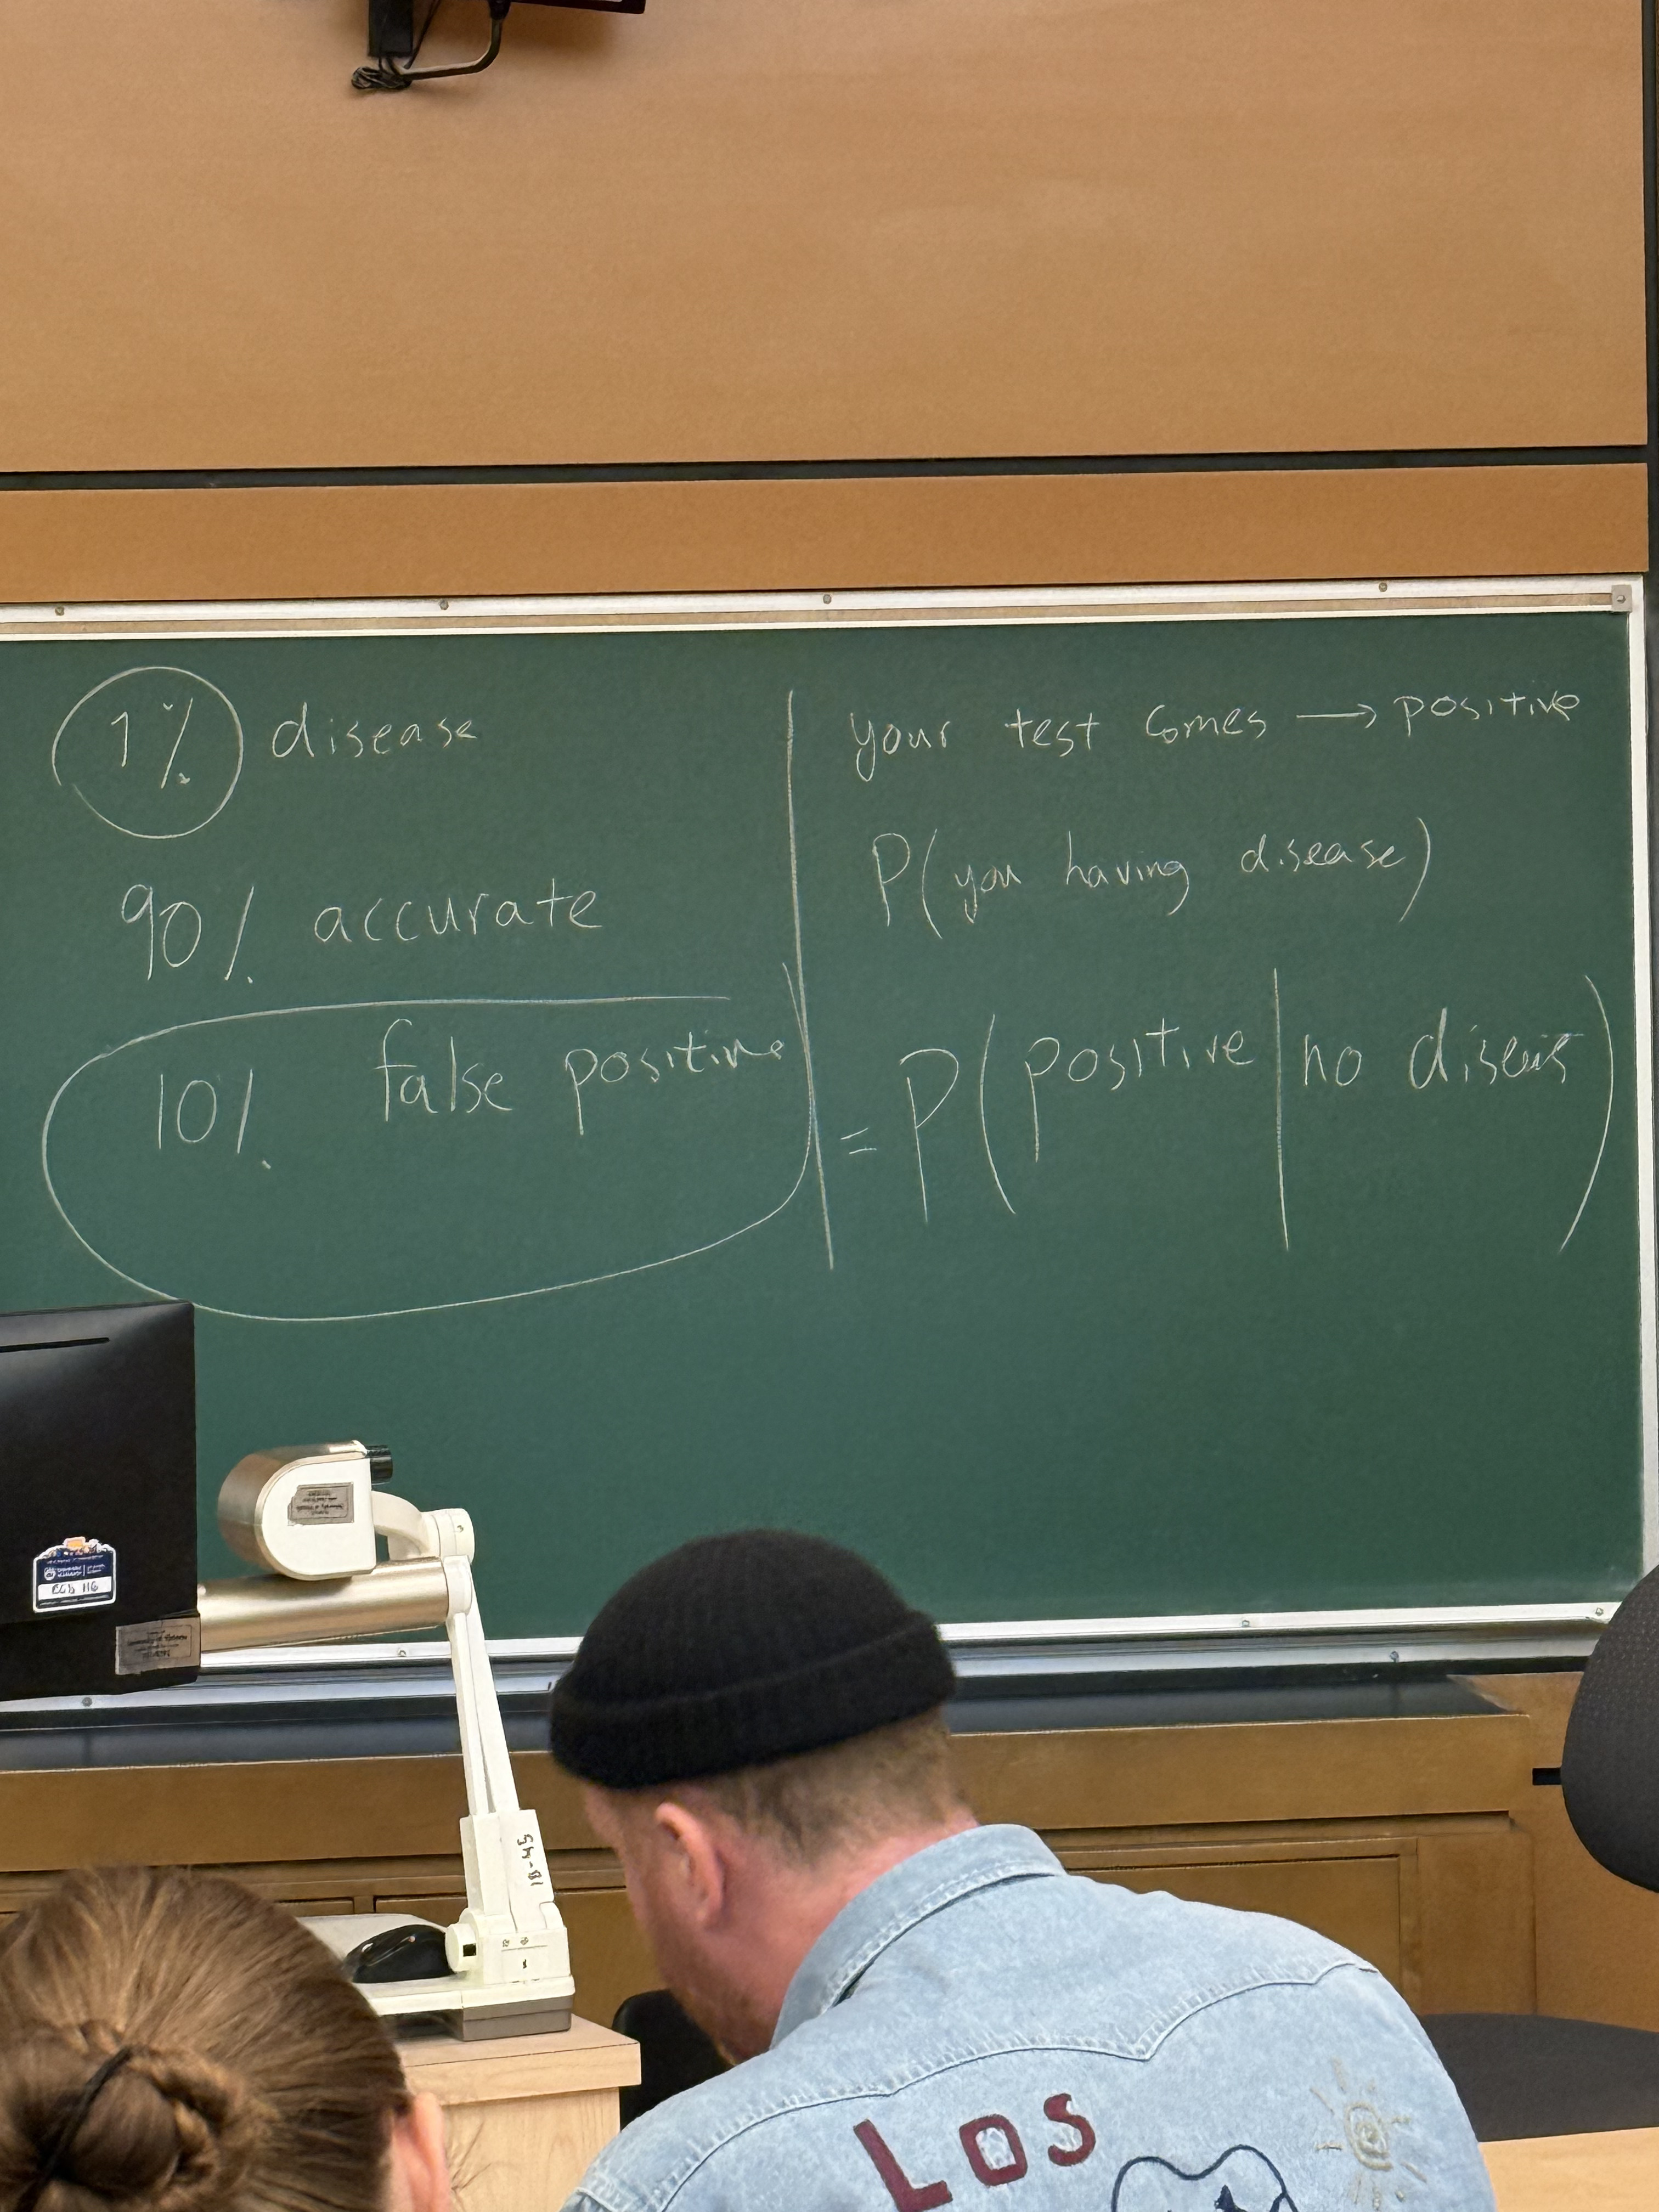 1% disease
90% accurate
10% false positive
your test comes → positive
P(you having disease)
= P(positive | no diseas)
ECS 116
18-45
LOS